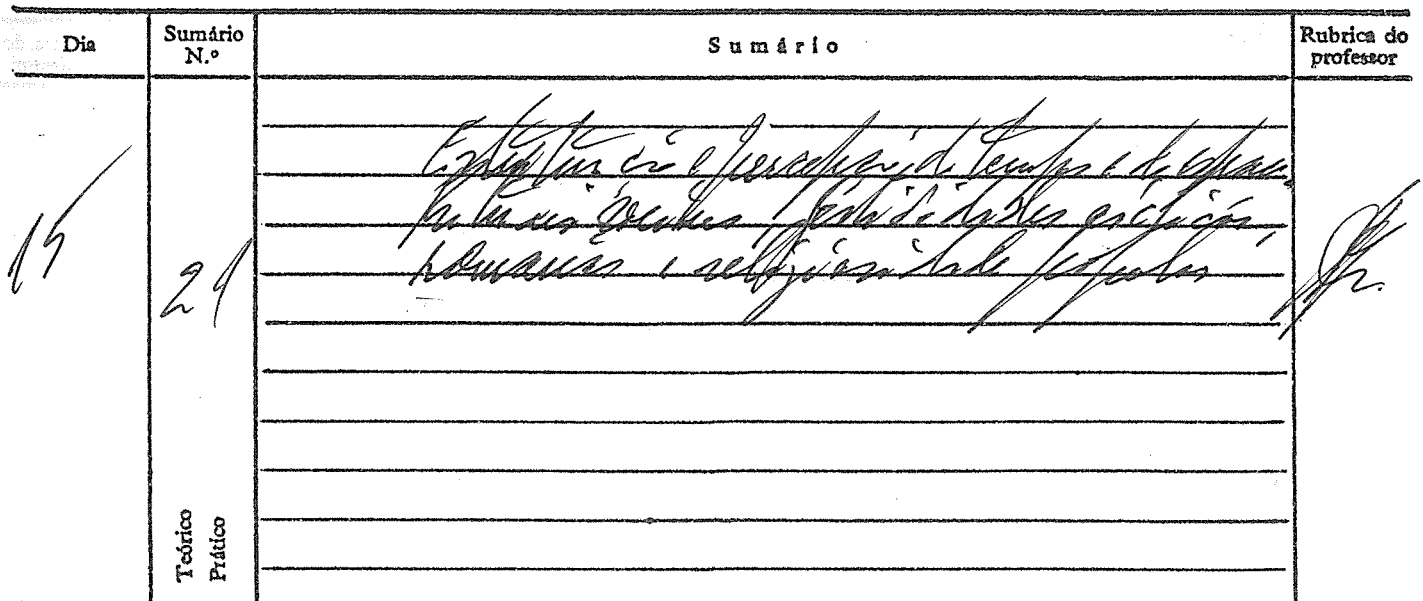 Dia
Sumário N.º
Sumário
Rubrica do professor
15
21
e percepção do tempo e do espaço
festividades cíclicas,
romarias e religiosidade popular
Teórico
Prático